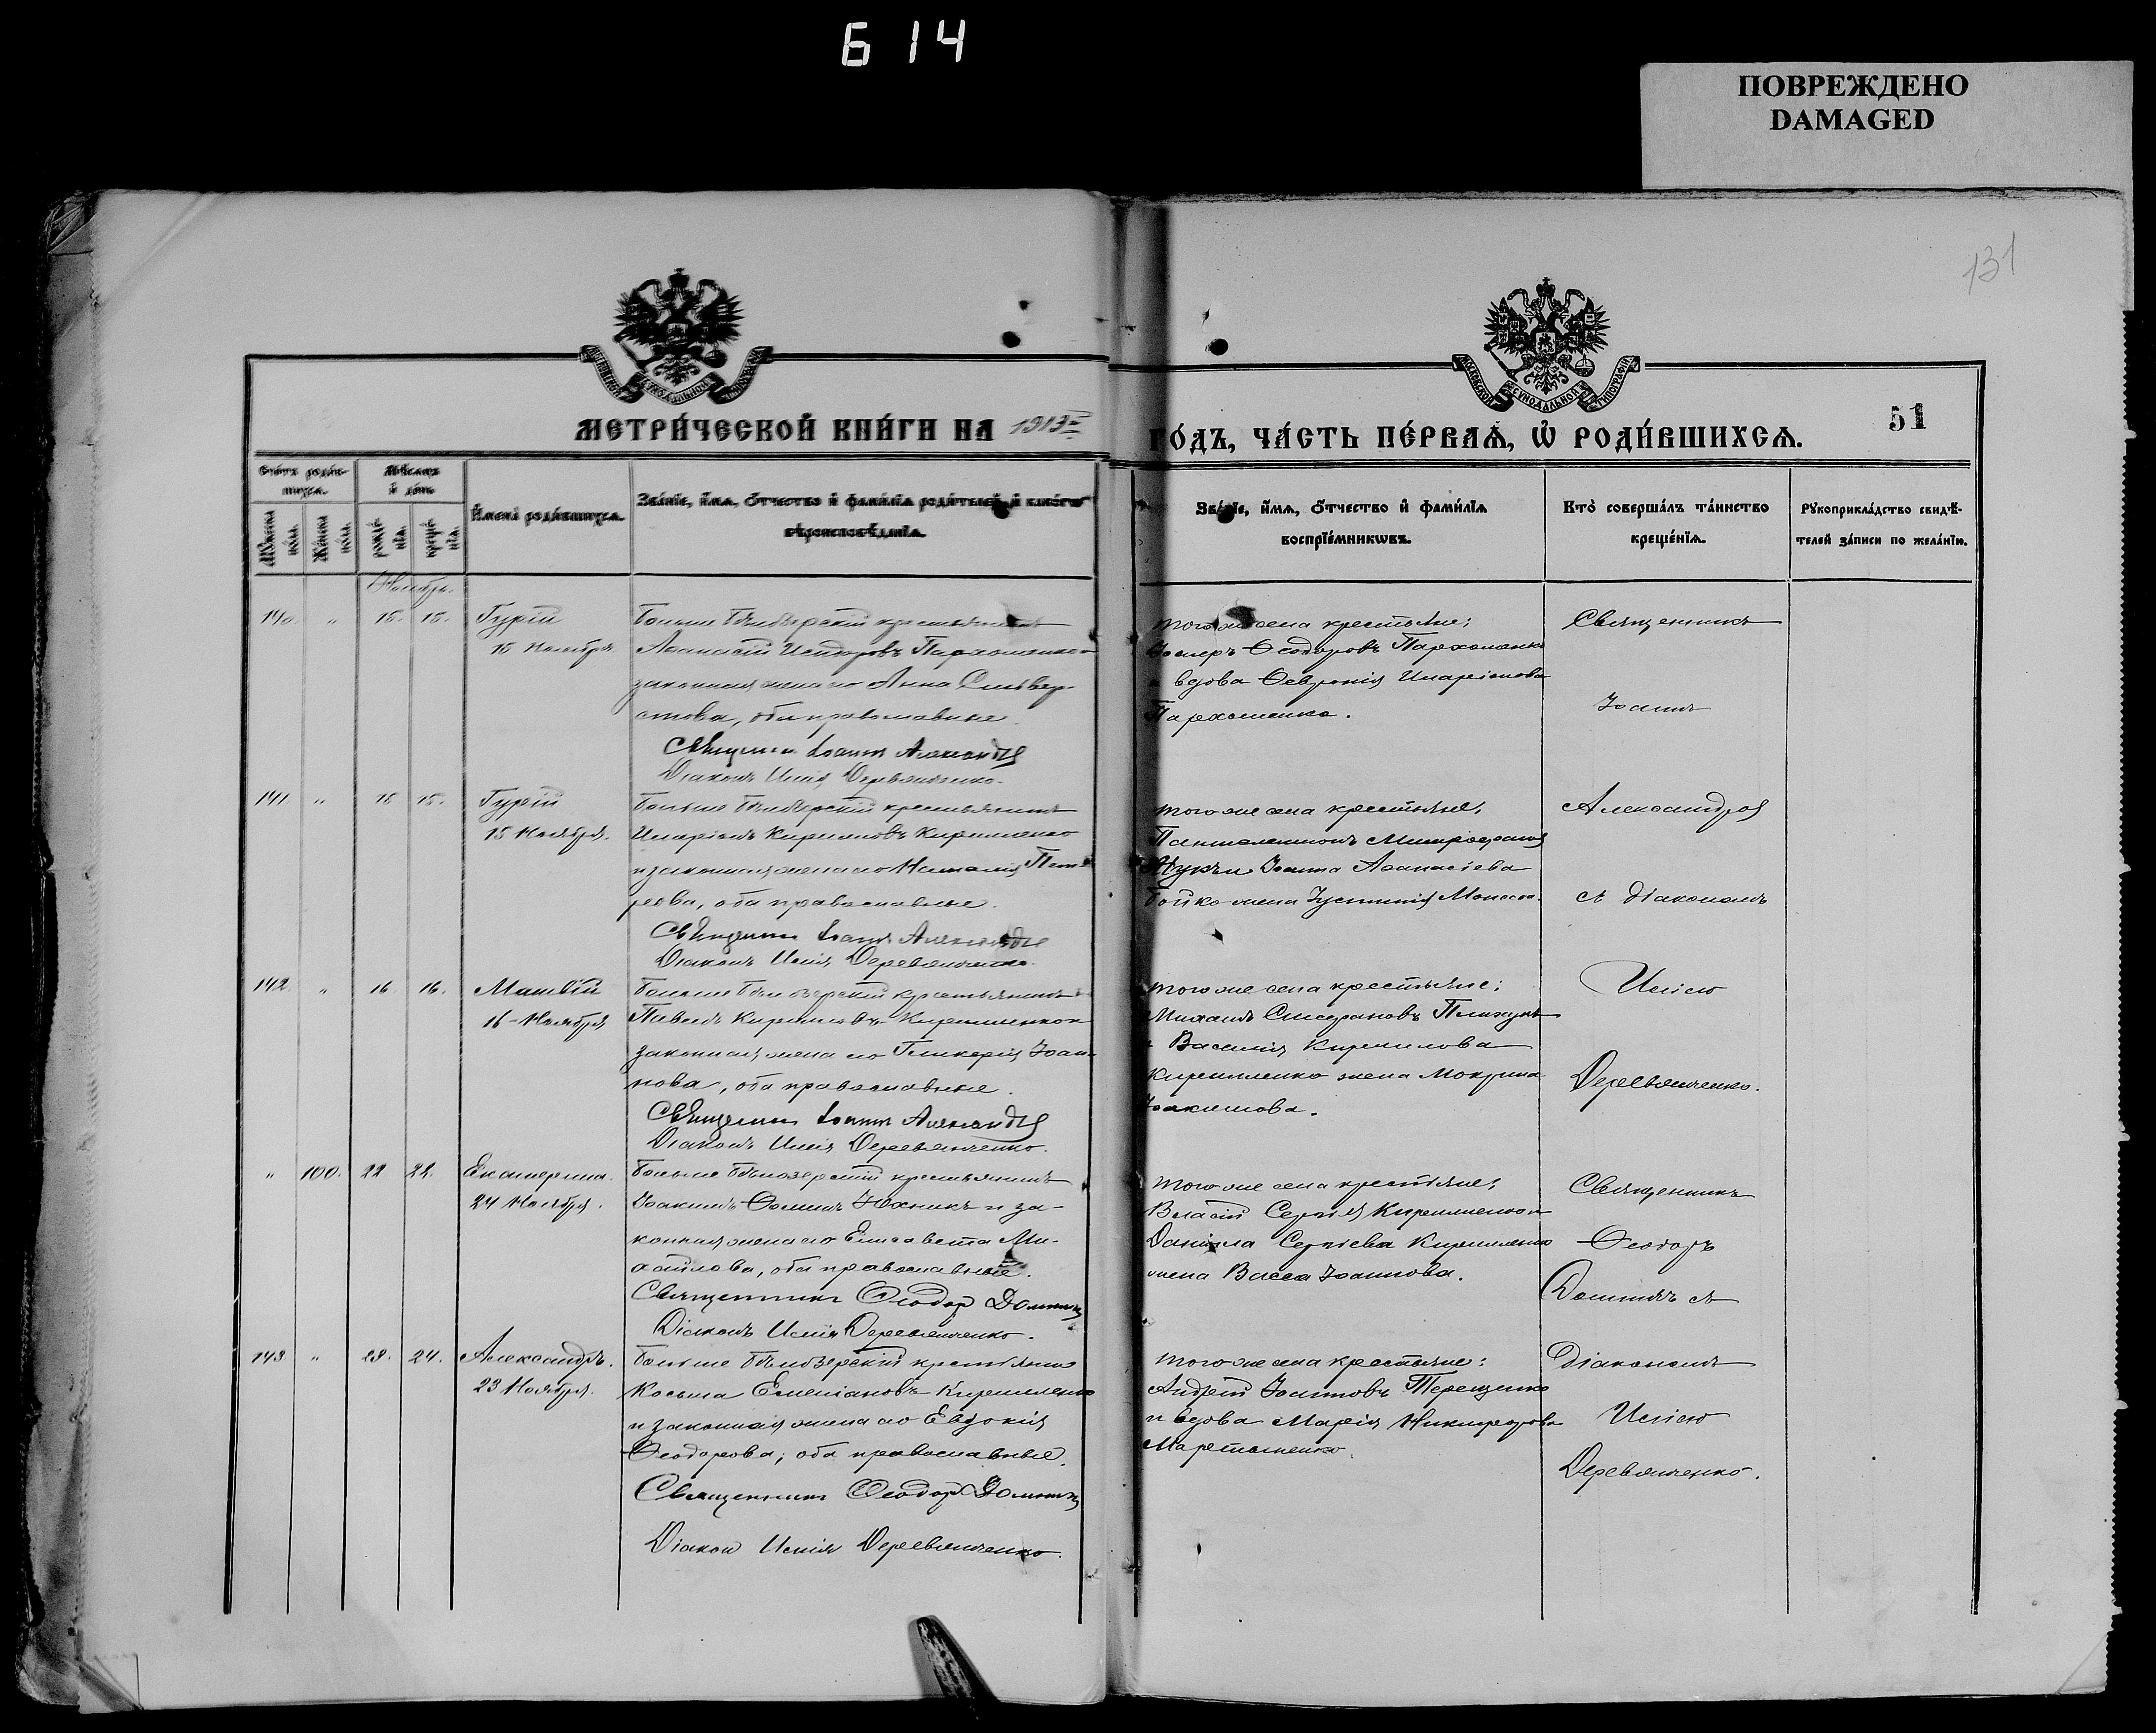 Б 14
ПОВРЕЖДЕНО
DAMAGED
131
МОСКОВСКОЙ СѴНОДАЛЬНОЙ ТИПОГРАФІИ
МЕТРИ́ЧЕСКОЙ КНИ́ГИ НА 1913
ГО́ДЪ, ЧА́СТЬ ПЕ́РВАѦ, Ѽ РОДИ́ВШИХСѦ.
51
Счетъ роди́вшихсѧ.
Мꙋ́жеска по́ла.
Же́нска по́ла.
Мѣ́сѧцъ и҆ де́нь
рожде́нїѧ.
креще́нїѧ.
И҆мена̀ роди́вшихсѧ.
Зва́нїе, и҆́мѧ, ѻ҆́тчество и҆ фами́лїѧ роди́телей, и҆ како́гѡ вѣроисповѣ́данїѧ.
Зва́нїе, и҆́мѧ, ѻ҆́тчество и҆ фами́лїѧ воспрїе́мникѡвъ.
Кто̀ соверша́лъ та́инство креще́нїѧ.
Рꙋкоприкла́дство свидѣ́телей за́писи по жела́нїю.
Ноябрь.
140. " 15. 15. Гурій
15 Ноября
Больше Бѣлозерскій крестьянинъ
Аѳанасій Исидоровъ Пархоменко и
законная жена его Анна Сильвер-
стова, оба православные.
Священникъ Іоаннъ Александровъ
Діаконъ Исаія Деревянченко.
того же села крестьяне:
Ѳеодоровъ Пархоменко
и вдова Ѳевронія Иларіонова
Пархоменко.
Священникъ
Іоаннъ
141. " 15 15. Гурій
15 Ноября.
Больше Бѣлозерскій крестьянинъ
Иларіонъ Кирилловъ Кириленко
и законная жена его Наталія
рова, оба православные.
Священникъ Іоаннъ Александровъ
Діаконъ Исаія Деревянченко.
того же села крестьяне:
Пантелеимонъ Митрофановъ
Іоанна Аѳанасіева
Бойко жена Іустинія
Александровъ
съ діакономъ
142. " 16 16. Матвій
16 Ноября
Больше Бѣлозерскій крестьянинъ
Павелъ Кирилловъ Кириленко и
законная жена его Гликерія Іоан-
нова, оба православные.
Священникъ Іоаннъ Александровъ
Діаконъ Исаія Деревянченко.
того же села крестьяне:
Михаилъ
и Василія Кириллова
Кириленко жена Мокрина
Іоакимова.
Исаіею
Деревянченко.
" 100. 22 22. Екатерина.
24 Ноября.
Больше Бѣлозерскій крестьянинъ
Іоакимъ Ѳоминъ Юхникъ и за-
конная жена его Елисавета Ми-
хайлова, оба православные.
Священникъ Ѳеодоръ
Діаконъ Исаія Деревянченко.
того же села крестьяне:
Власій Сергіевъ Кириленко и
Даніила Сергіева Кириленко
жена Васса Іоаннова.
Священникъ
Ѳеодоръ
съ
143. " 23. 24. Александръ.
23 Ноября.
Больше Бѣлозерскій крестьянинъ
Косьма Емеліановъ Кириленко
и законная жена его Евдокія
Ѳеодорова; оба православные.
Священникъ Ѳеодоръ
Діакон Исаія Деревянченко.
того же села крестьяне:
Андрей Іоанновъ Терещенко
и вдова Марія Никифорова
Мартыненко.
діакономъ
Исаіею
Деревянченко.